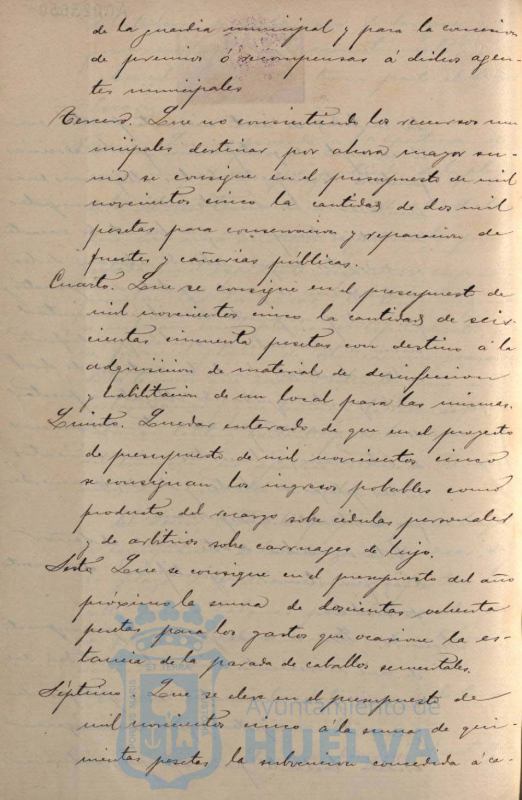 de la guardia municipal y para la concesion
de premios ó recompensas á dichos agen-
tes municipales
Tercero. Que no consintiendo los recursos mu
nicipales destinar por ahora mayor su-
ma se consigne en el presupuesto de mil
novecientos cinco la cantidad de dos mil
pesetas para conservacion y reparacion de
fuentes y cañerias públicas.
Cuarto. Que se consigne en el presupuesto de
mil novecientos cinco la cantidad de seis-
cientas cincuenta pesetas con destino á la
adquisicion de material de desinfeccion
y habilitacion de un local para las mismas.
Quinto. Quedar enterado de que en el proyecto
de presupuesto de mil novecientos cinco
se consignan los ingresos probables como
producto del recargo sobre cédulas personales
y de arbitrios sobre carruages de lujo.
Sesto Que se consigne en el presupuesto del año
próximo la suma de doscientas ochenta
pesetas para los gastos que ocasione la es-
tancia de la parada de caballos sementales.
Séptimo Que se eleve en el presupuesto de
mil novecientos cinco á la suma de qui-
nientas pesetas la subvencion concedida á ca-
Ayuntamiento de
HUELVA